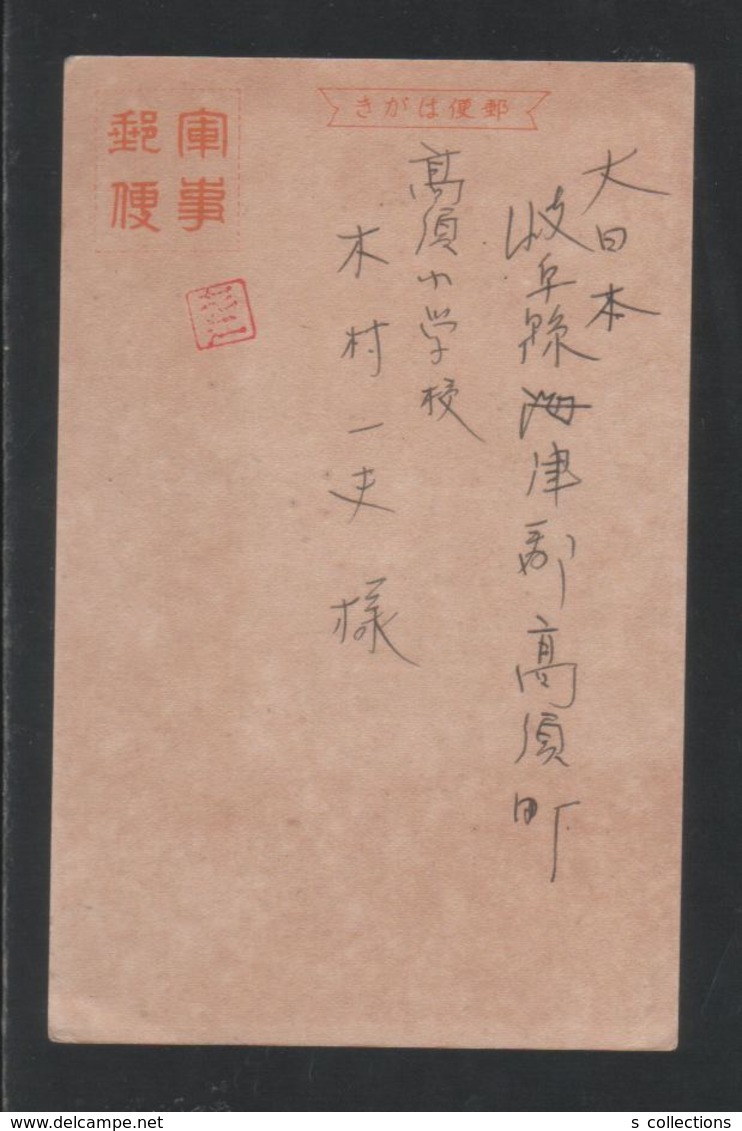 郵便はがき
軍事
郵便
大日本
岐阜縣海津郡高須町
高須小学校
木村一夫様
s collections